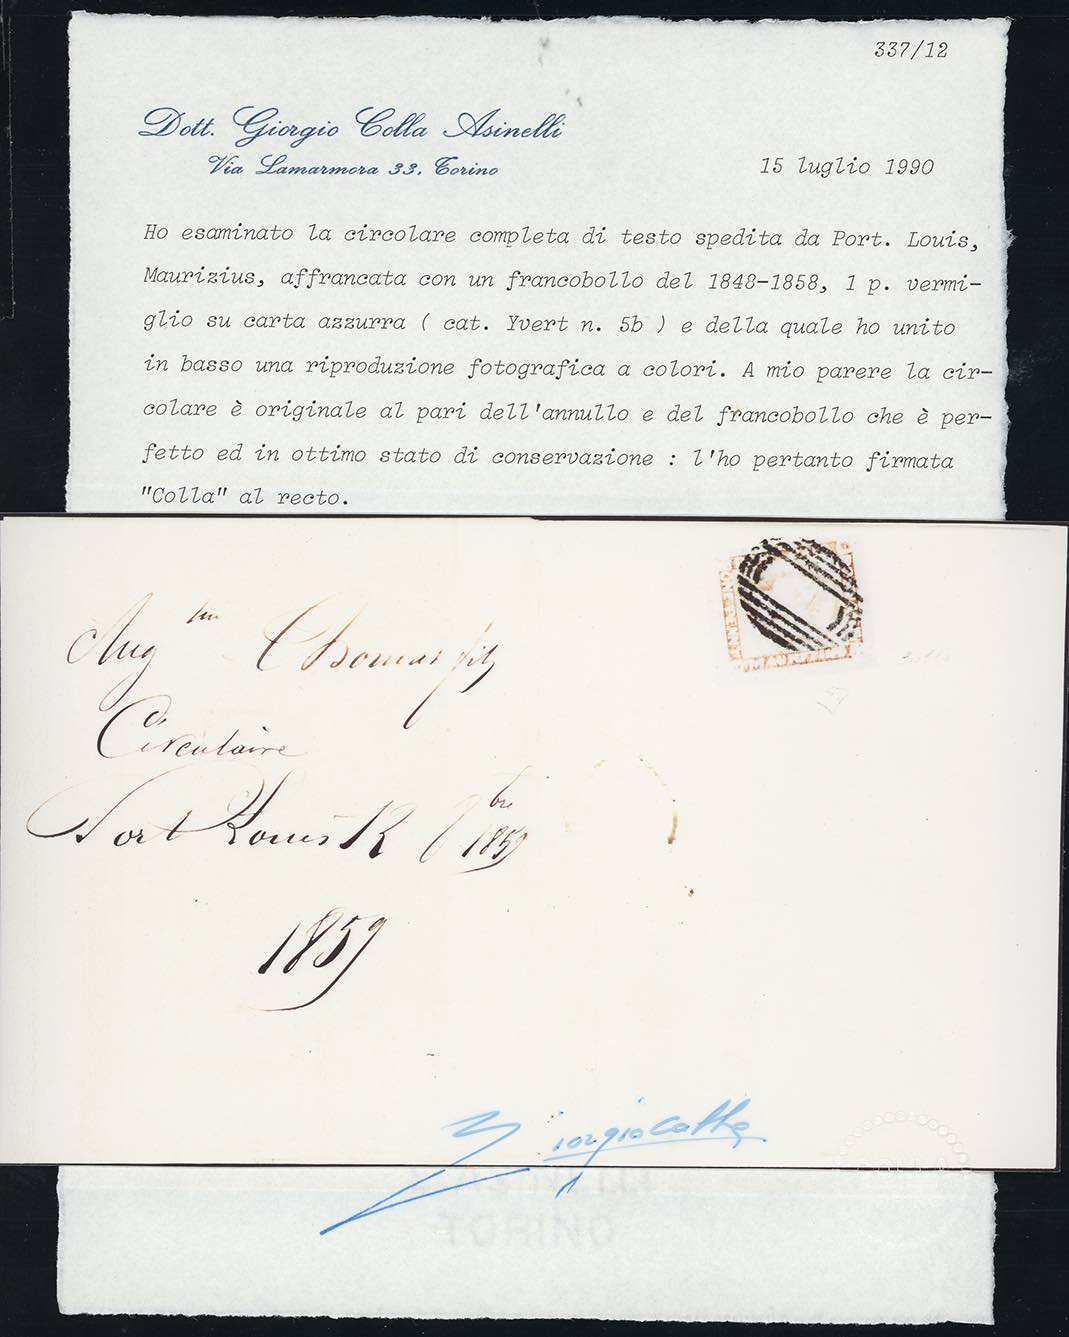 337/12
Dott. Giorgio Colla Asinelli
Via Lamarmora 33. Torino
15 luglio 1990
Ho esaminato la circolare completa di testo spedita da Port. Louis,
Maurizius, affrancata con un francobollo del 1848-1858, 1 p. vermi-
glio su carta azzurra ( cat. Yvert n. 5b ) e della quale ho unito
in basso una riproduzione fotografica a colori. A mio parere la cir-
colare è originale al pari dell'annullo e del francobollo che è per-
fetto ed in ottimo stato di conservazione : l'ho pertanto firmata
"Colla" al recto.
Thomas fils
Circulaire
Port Louis 12 bre
1859
1859
Giorgio Colla
TORINO